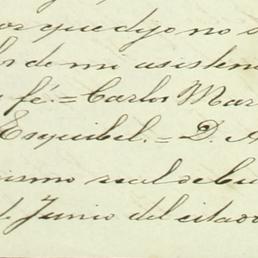 por que dijo no s
lo de mi asisten
fé.= Carlos Mar
Esquibel.= D. A
ismo real de bu
Junio del citado